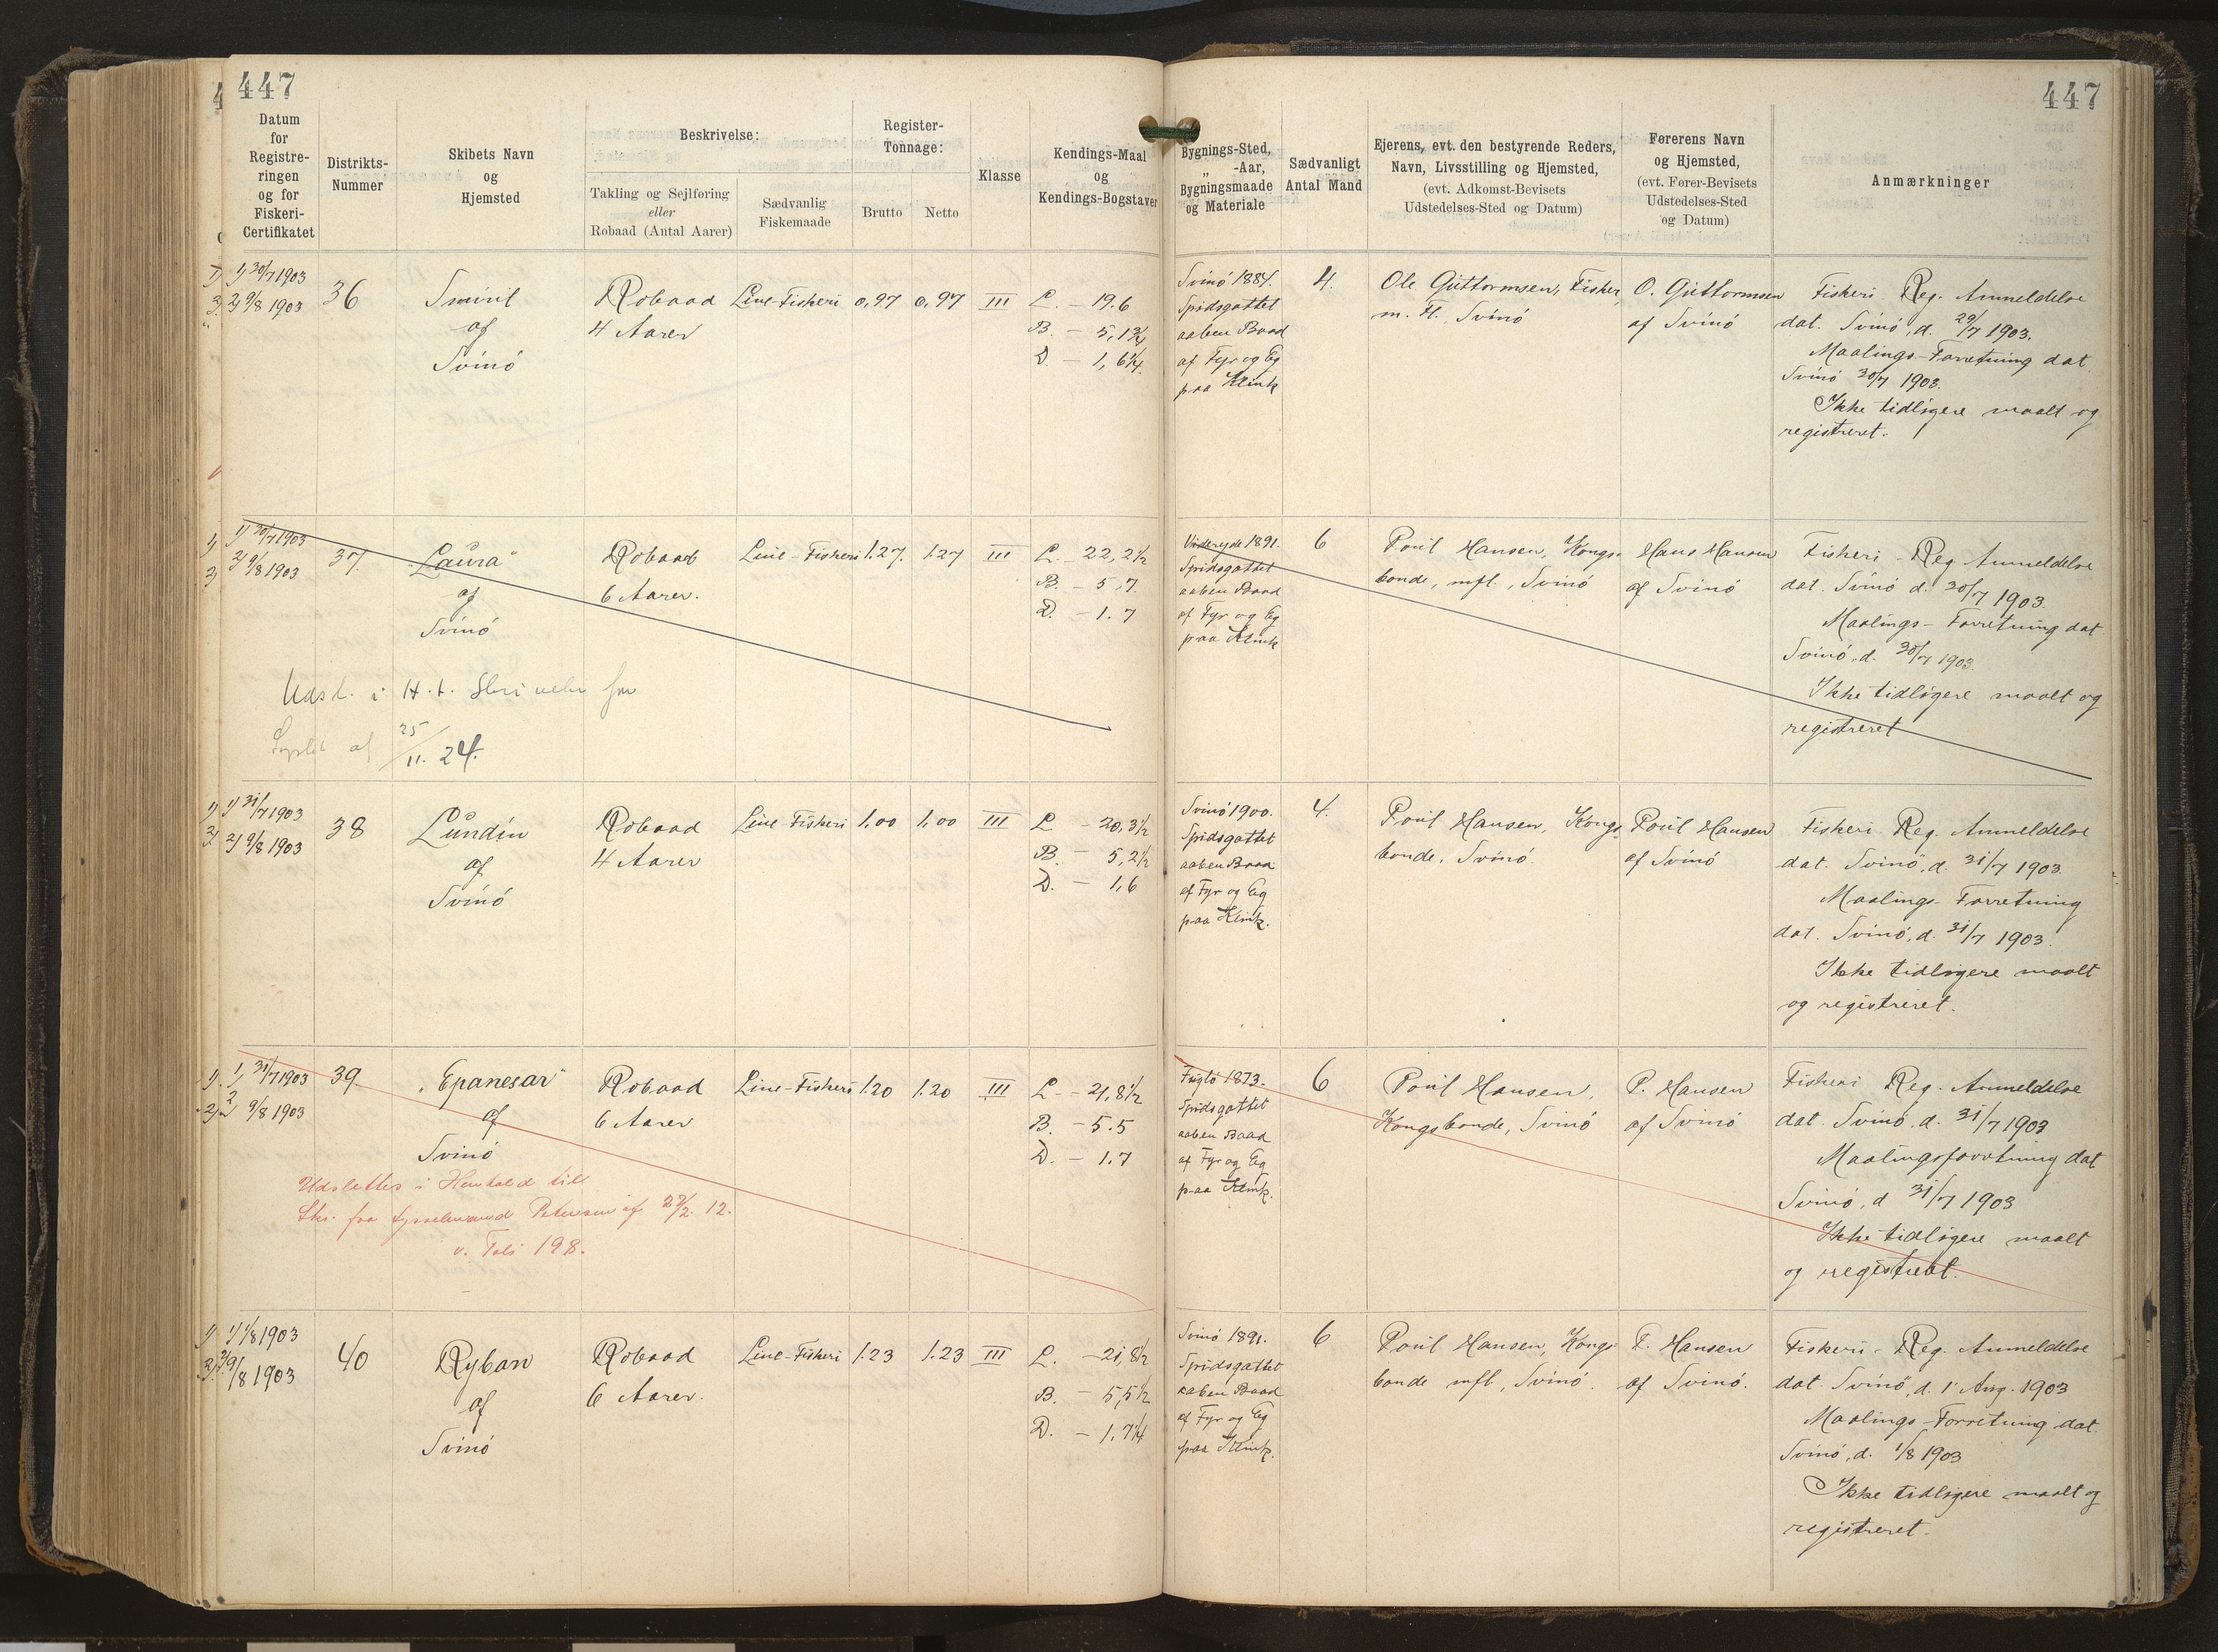 447
447
Datum
for
Registre-
ringen
og for
Fiskeri-
Certifikatet
Distrikts-
Nummer
Skibets Navn
og
Hjemsted
Beskrivelse:
Takling og Sejlføring
eller
Robaad (Antal Aarer)
Sædvanlig
Fiskemaade
Register-
Tonnage:
Brutto
Netto
Klasse
Kendings-Maal
og
Kendings-Bogstaver
Bygnings-Sted,
„ -Aar,
Bygningsmaade
og Materiale
Sædvanligt
Antal Mand
Ejerens, evt. den bestyrende Reders,
Navn, Livsstilling og Hjemsted,
(evt. Adkomst-Bevisets
Udstedelses-Sted og Datum)
Førerens Navn
og Hjemsted,
(evt. Fører-Bevisets
Udstedelses-Sted
og Datum)
Anmærkninger
1) 30/7 1903
2) 9/8 1903
36
Smiril
af
Svinö
Robaad
4 Aarer
Line-Fiskeri
0,97
0,97
III
L. - 19.6
B. - 5,1 3/4
D - 1,6 1/4
Svinö 1884.
Spidsgattet
aaben Baad
af Fyr og Eg
paa Klink
4.
Ole Guttormsen, Fisker,
m. Fl., Svinö
O. Guttormsen
af Svinö
Fiskeri Reg. Anmeldelse
dat. Svinö, d. 29/7 1903.
Maalings-Forretning dat
Svinö 30/7 1903.
Ikke tidligere maalt og
registreret.
1) 30/7 1903
2) 9/8 1903
37.
"Laura"
af
Svinö
Robaad
6 Aarer.
Line-Fiskeri
1.27.
1.27
III
L. - 22,2 1/2
B. - 5,7.
D. - 1.7
1891.
Spidsgattet
aaben Baad
af Fyr og Eg
paa Klink
6
Poul Hansen, Kongs-
bonde, mfl., Svinö
Hans Hansen
af Svinö
Fiskeri-Reg. Anmeldelse
dat. Svinö d. 30/7 1903.
Maalings-Forretning dat
Svinö, d. 30/7 1903.
Ikke tidligere maalt og
registreret
Udsl. i H. t. Skrivelse fra
af 25/11. 24.
1) 31/7 1903
2) 9/8 1903
38
Lundin
af
Svinö
Robaad
4 Aarer
Line-Fiskeri
1,00
1,00
III
L - 20,3 1/2
B. - 5,2 1/2
D. - 1,6
Svinö 1900.
Spidsgattet
aaben Baad
af Fyr og Eg
paa Klink.
4.
Poul Hansen, Kongs-
bonde, Svinö.
Poul Hansen
af Svinö
Fiskeri Reg. Anmeldelse
dat. Svinö, d. 31/7 1903.
Maalings-Forretning
dat. Svinö, d. 31/7 1903.
Ikke tidligere maalt
og registreret.
1) 31/7 1903
2 9/8 1903
39.
"Epanesar"
af
Svinö
Robaad
6 Aarer
Line-Fiskeri
1.20
1.20
III
L - 21,8 1/2
B. - 5.5
D. - 1.7
Fuglö 1873.
Spidsgattet
aaben Baad
af Fyr og Eg
paa Klink.
6
Poul Hansen,
Kongsbonde, Svinö
P. Hansen
af Svinö
Fiskeri Reg. Anmeldelse
dat. Svinö, d. 31/7 1903
Maalingsforretning dat
Svinö, d 31/7 1903
Ikke tidligere maalt
og registreret.
Udslettes i Henhold till
Skr. fra Sysselmand Petersen af 27/2. 12.
v. Fol. 198.
1) 1/8 1903
2) 9/8 1903
40
Ryban
af
Svinö
Robaad
6 Aarer.
Line-Fiskeri
1.23
1.23
III
L. - 21,8 1/2
B. - 5,5 1/2
D. - 1,7 1/4
Svinö 1891.
Spidsgattet
aaben Baad
af Fyr og Eg
paa Klink.
6
Poul Hansen, Kongs-
bonde mfl., Svinö.
P. Hansen
af Svinö.
Fiskeri-Reg. Anmeldelse
dat. Svinö, d. 1 Aug. 1903
Maalings-Forretning dat.
Svinö, d. 1/8 1903
Ikke tidligere maalt og
registreret.